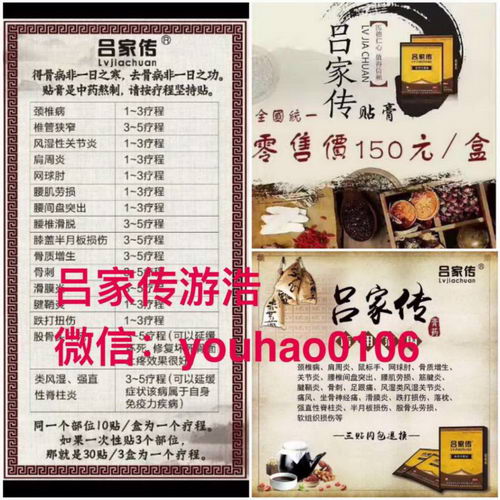 吕家传®
Lvjiachuan
得骨病非一日之寒，去骨病非一日之功。
贴膏是中药熬制，请按疗程坚持贴。
颈椎病 1~3疗程
椎管狭窄 3~5疗程
风湿性关节炎 3~5疗程
肩周炎 1~3疗程
网球肘 1~3疗程
腰肌劳损 1~3疗程
腰间盘突出 1~3疗程
腰椎滑脱 3~5疗程
膝盖半月板损伤 3~5疗程
骨质增生 3~5疗程
骨刺
滑膜炎
腱鞘炎
跌打扭伤
股骨
5疗程(可以延缓
坏死，修复坏死
疼效果很好)
类风湿、强直性脊柱炎 3~5疗程(可以延缓症状该病属于自身免疫力疾病)
同一个部位10贴/盒为一个疗程。
如果一次性贴3个部位，
那就是30贴/3盒为一个疗程。
传德仁心 值得信赖
LV JIA CHUAN
吕家传
贴膏
吕家传
全國統一
零售價150元/盒
吕家传®
Lvjiachuan
吕家传
膏药
颈椎病、肩周炎、鼠标手、网球肘、骨质增生、
关节炎、腰椎间盘突出、腰肌劳损、筋腱炎、
腱鞘炎、骨刺、足跟痛、风湿类风湿关节炎、
痛风、坐骨神经痛、滑膜炎、跌打损伤、落枕、
强直性脊柱炎、半月板损伤、股骨头劳损、
软组织损伤等
三贴内包退换
吕家传游浩
微信：youhao0106